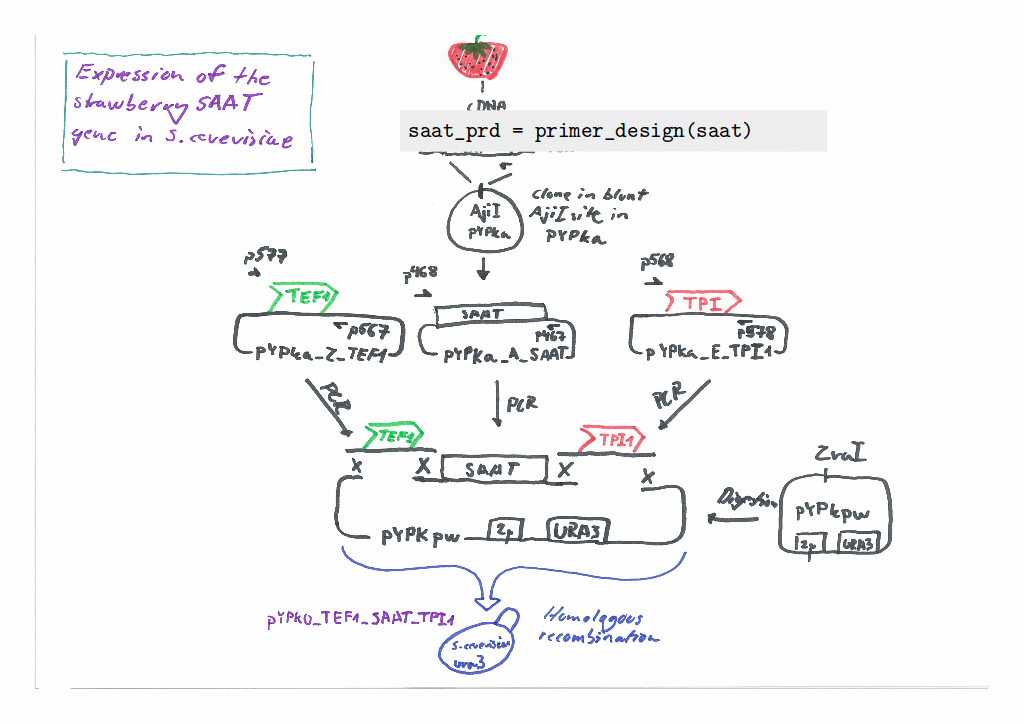 Expression of the
strawberry SAAT
gene in S. cerevisiae
cDNA
saat_prd = primer_design(saat)
AjiI
pYPka
Clone in blunt
AjiI site in
pYPka
p577
TEF1
p567
pYPka_Z_TEF1
p468
SAAT
p467
pYPka_A_SAAT
p568
TPI
p578
pYPka_E_TPI1
PCR
PCR
PCR
TEF1
TPI1
X X SAAT X X
pYPKpw 2µ URA3
Digestion
ZraI
pYPkpw
2µ URA3
pYPK0_TEF1_SAAT_TPI1
Homologous
recombination
S. cerevisiae
ura3